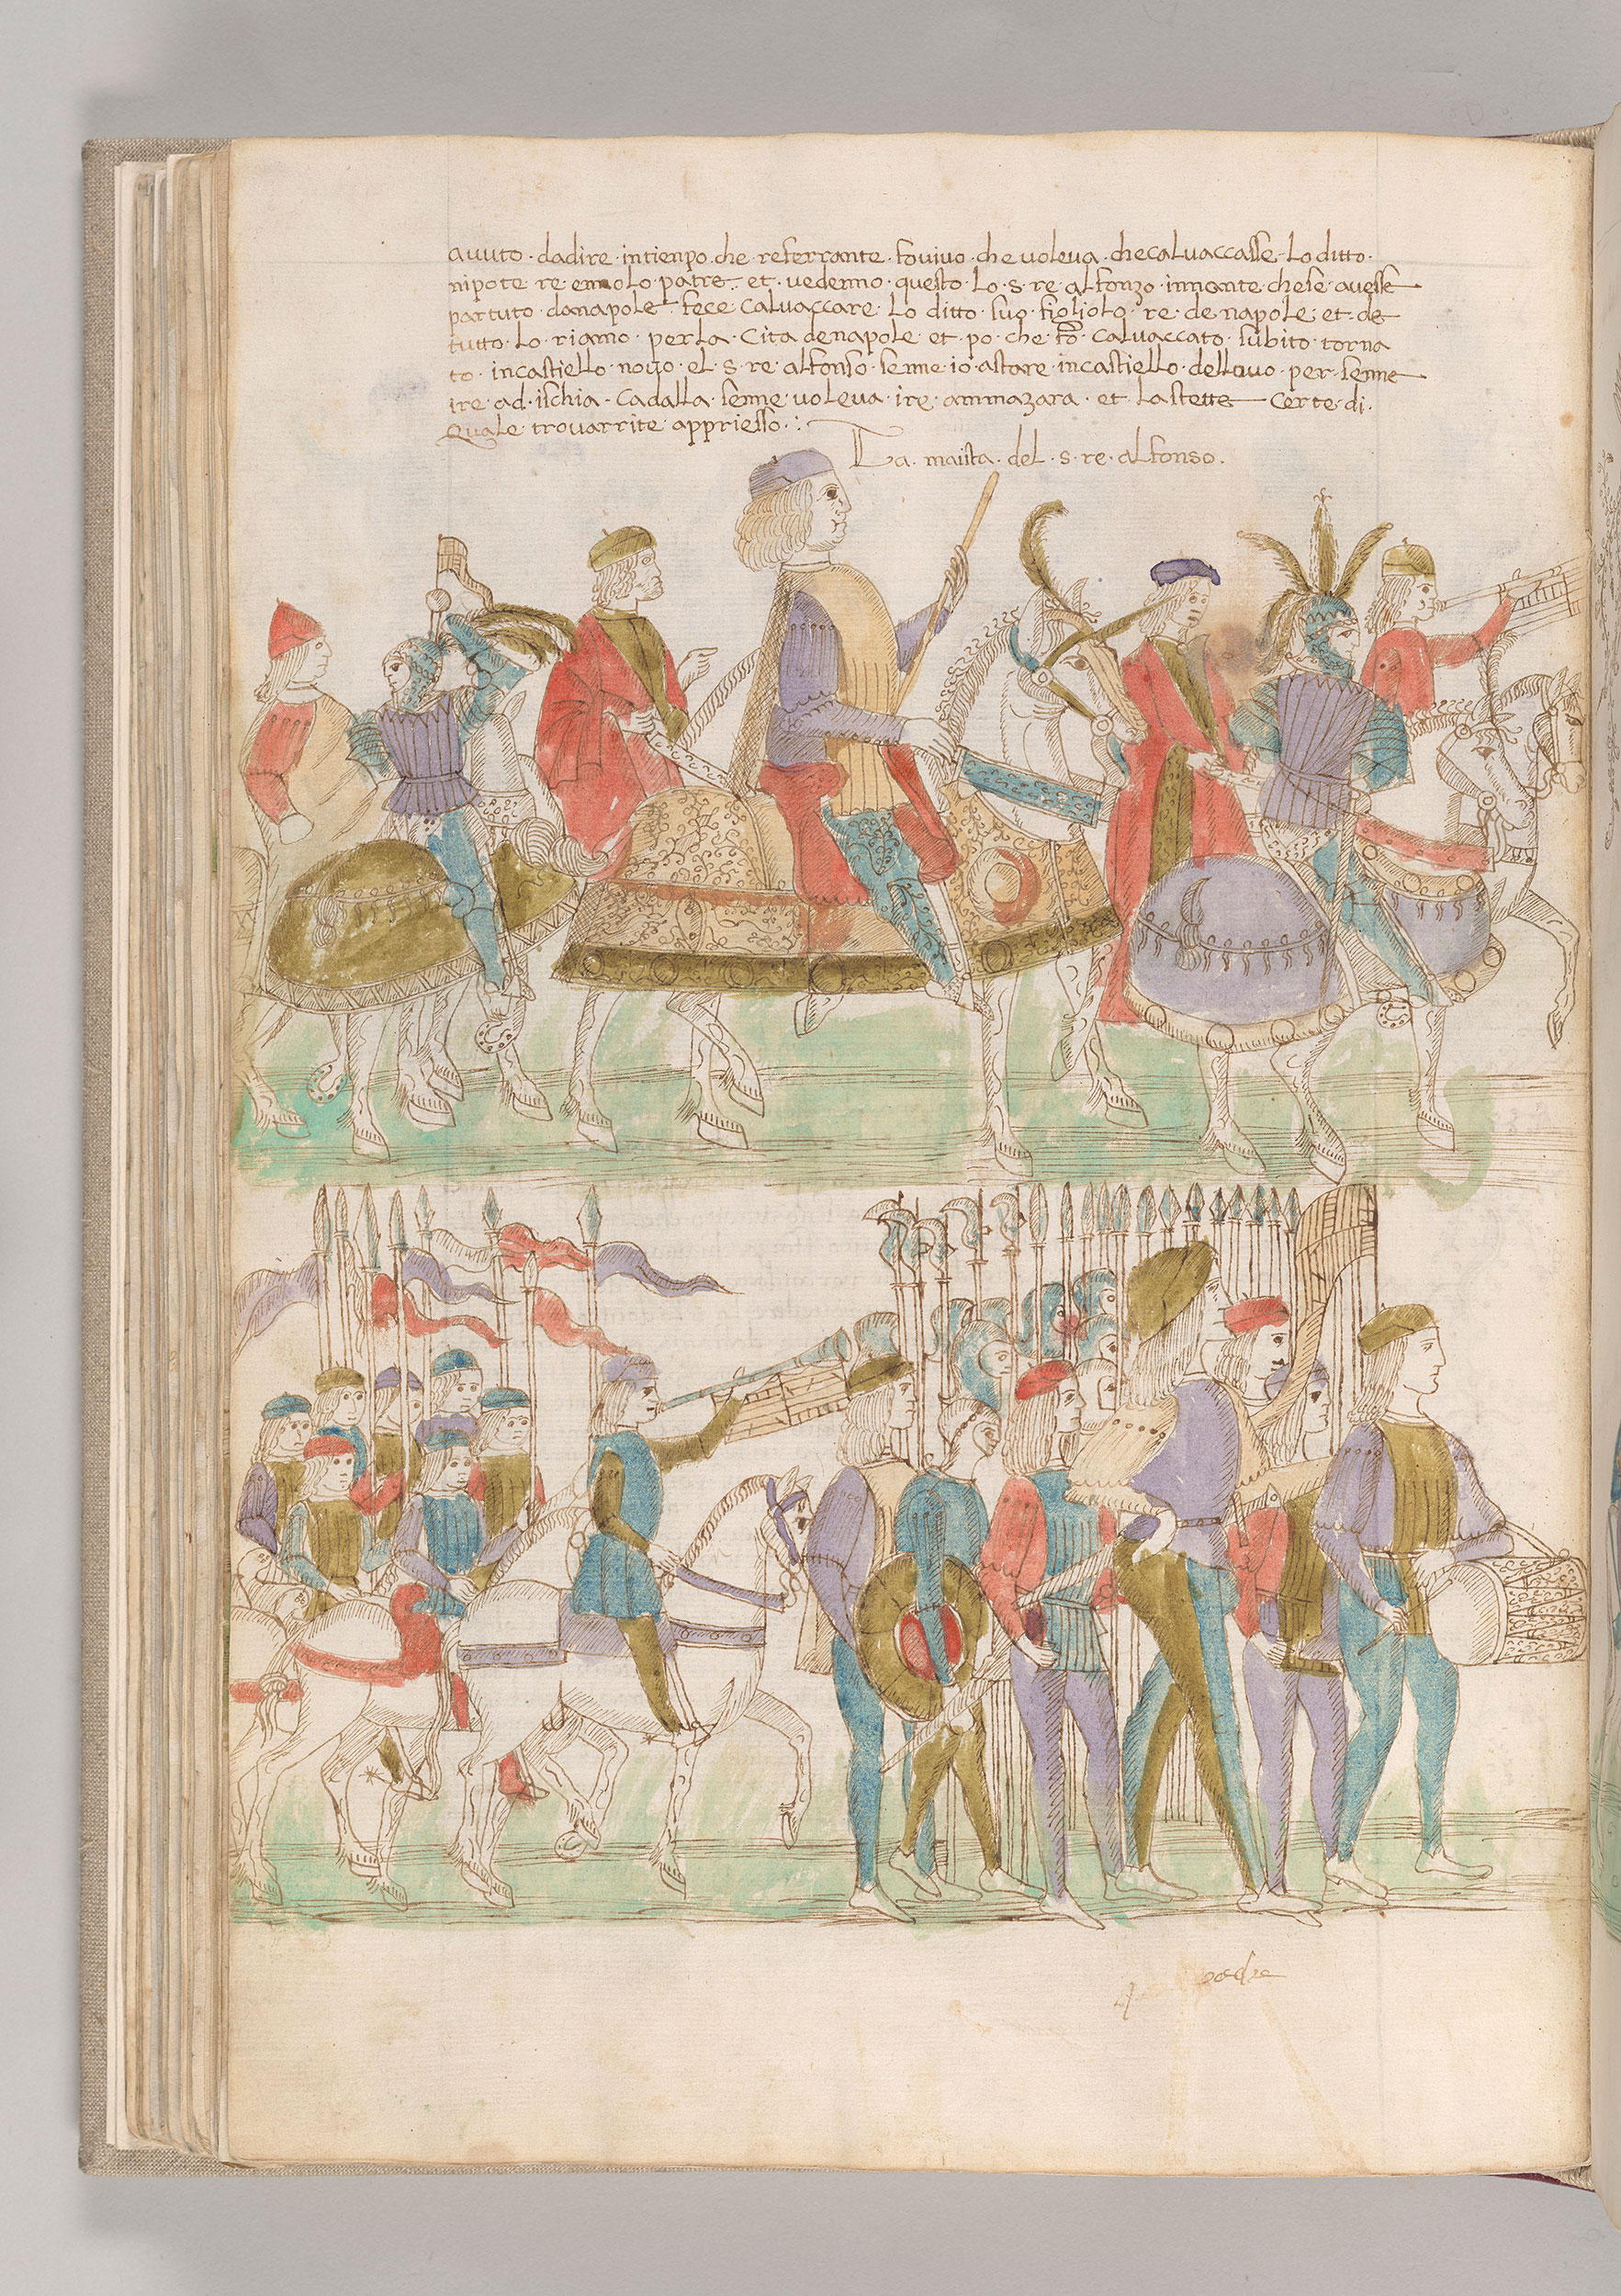 auuto · dadire · intienpo · che · referrante · fo vivo · che voleva · checalvaccasse · Lo ditto ·
nipote re enolo patre · et · vedenno · questo · Lo · s · re alfonzo · innante chese avesse
partuto danapole · fece calvaccare · Lo ditto · suo · figliolo · re · de napole · et · de
tutto · Lo · riamo · per La · Cita denapole · et · po · che · fo · calvaccato · subito · torna
to · incastiello · novo · el · s · re · alfonso · senne · io · astare · incastiello · dellovo · per · senne
ire · ad · ischia · Cadalla · senne · voleva · ire · ammazara · et · La stette certe · di ·
Quale · trovarrite · appriesso ·
La · maiista · del · s · re · alfonso ·